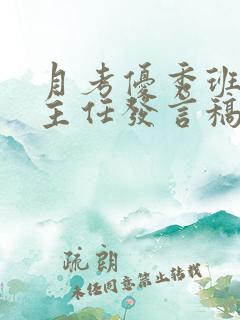 月考優秀班
主任發言稿
疏朗
未经同意禁止转载